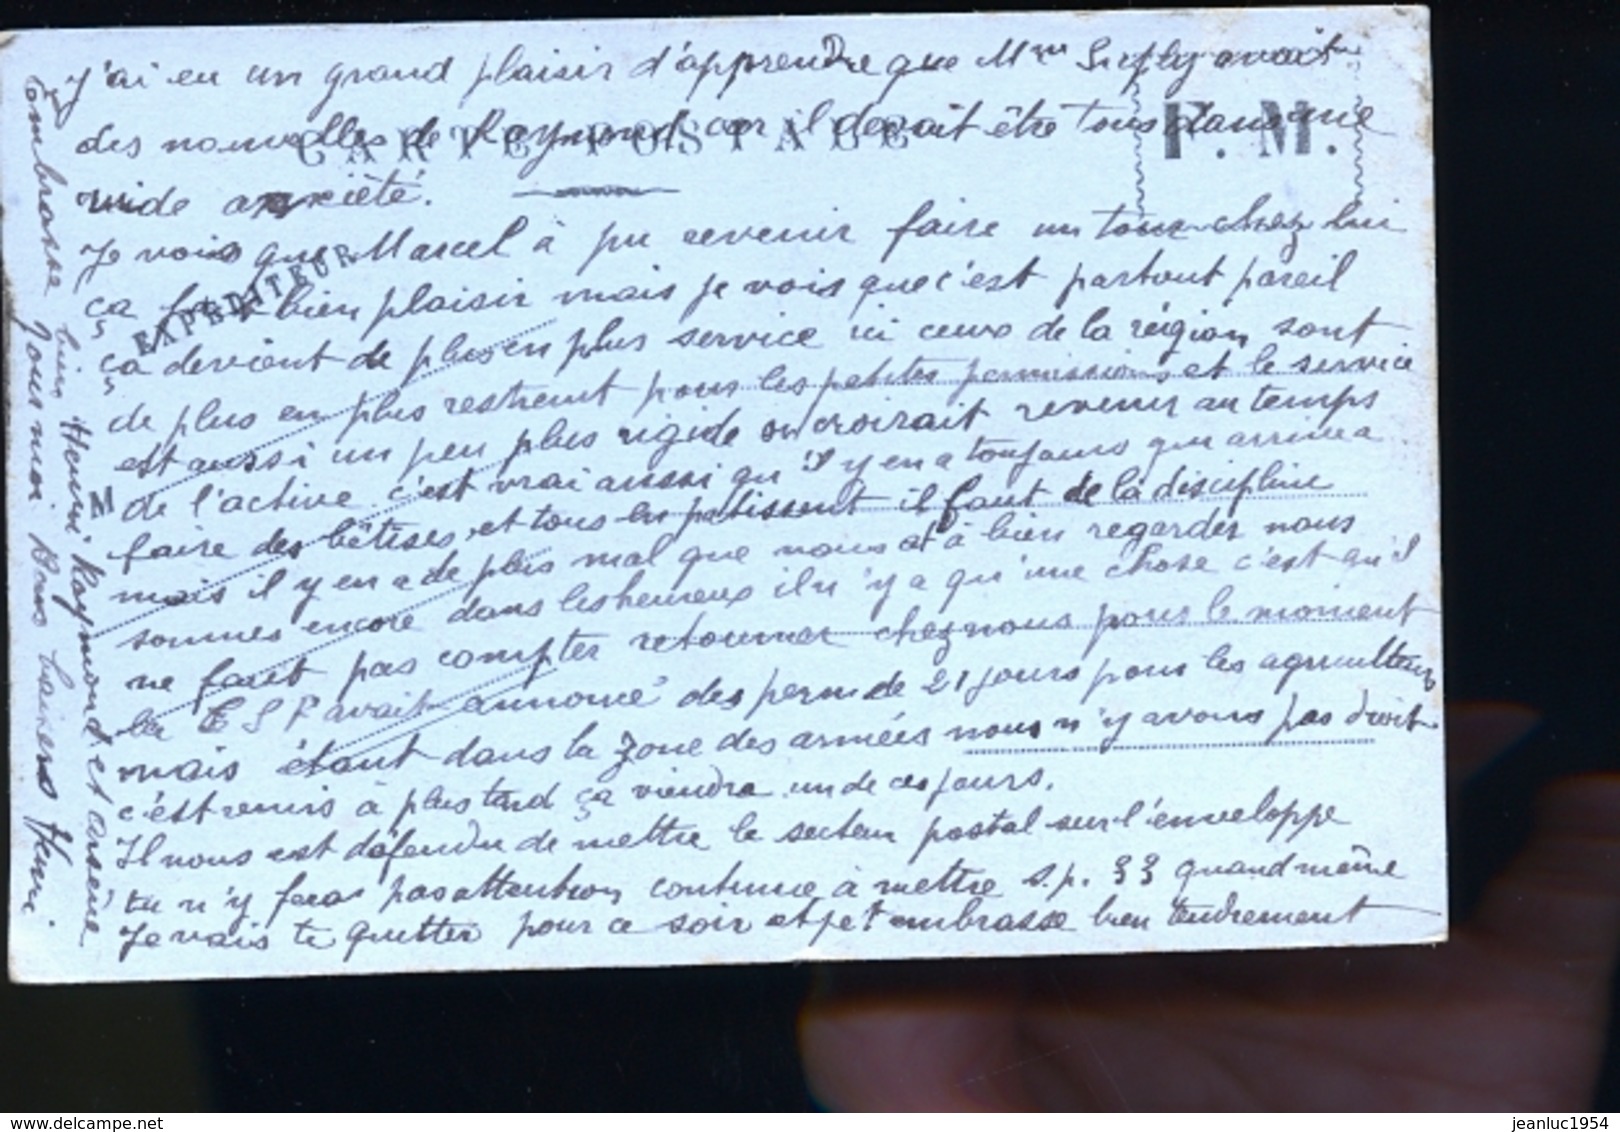 j'ai eu un grand plaisir d'apprendre que Mme avait
des nouvelles de Raymond car il devait être tous dans une
rude anxiété.
Je vois que Marcel à pu revenir faire un tour chez lui
ça fait bien plaisir mais je vois que c'est partout pareil
ça devient de plus en plus service ici ceux de la région sont
de plus en plus restreint pour les petites permissions et le service
est aussi un peu plus rigide on croirait revenir au temps
de l'active c'est vrai aussi qu'il y en a toujours qui arrive a
faire des bêtises et tous en patissent il faut de la discipline
mais il y en a de plus mal que nous et à bien regarder nous
sommes encore dans les heureux il n'y a qu'une chose c'est qu'il
ne faut pas compter retourner chez nous pour le moment
la TSF avait annoncé des perm de 21 jours pour les agriculteurs
mais étant dans la zone des armées nous n'y avons pas droit
c'est remis à plus tard ça viendra un de ces jours.
Il nous est défendu de mettre le secteur postal sur l'enveloppe
tu n'y feras pas attention continue à mettre s.p. 33 quand même
Je vais te quitter pour ce soir et je t'embrasse bien tendrement
embrasse bien Henri Raymond et Arsène
pour moi Bons baisers Henri
CARTE POSTALE
F. M.
EXPÉDITEUR
www.delcampe.net
jeanluc1954